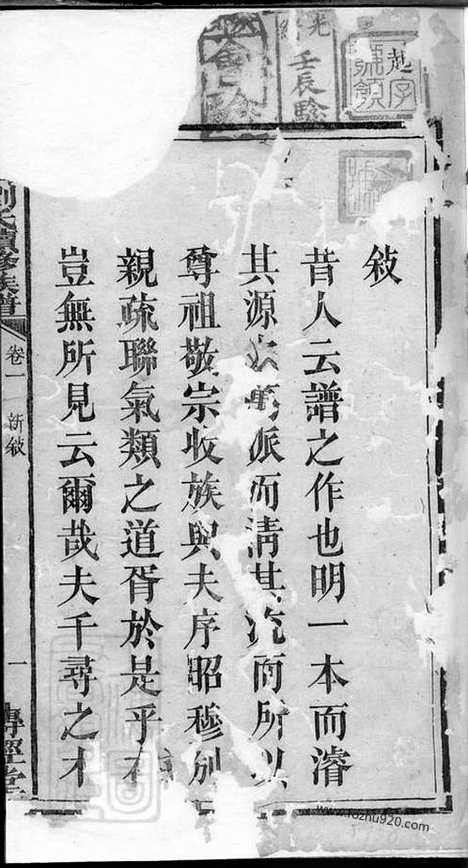 光緒
壬辰
敍
昔人云譜之作也明一本而濬
其源萬派而清其流而所以
尊祖敬宗收族與夫序昭穆別
親疏聯氣類之道胥於是乎在
豈無所見云爾哉夫千尋之木
劉氏續修族譜
卷一 新敍
一
傳經堂
www.fozhu920.com